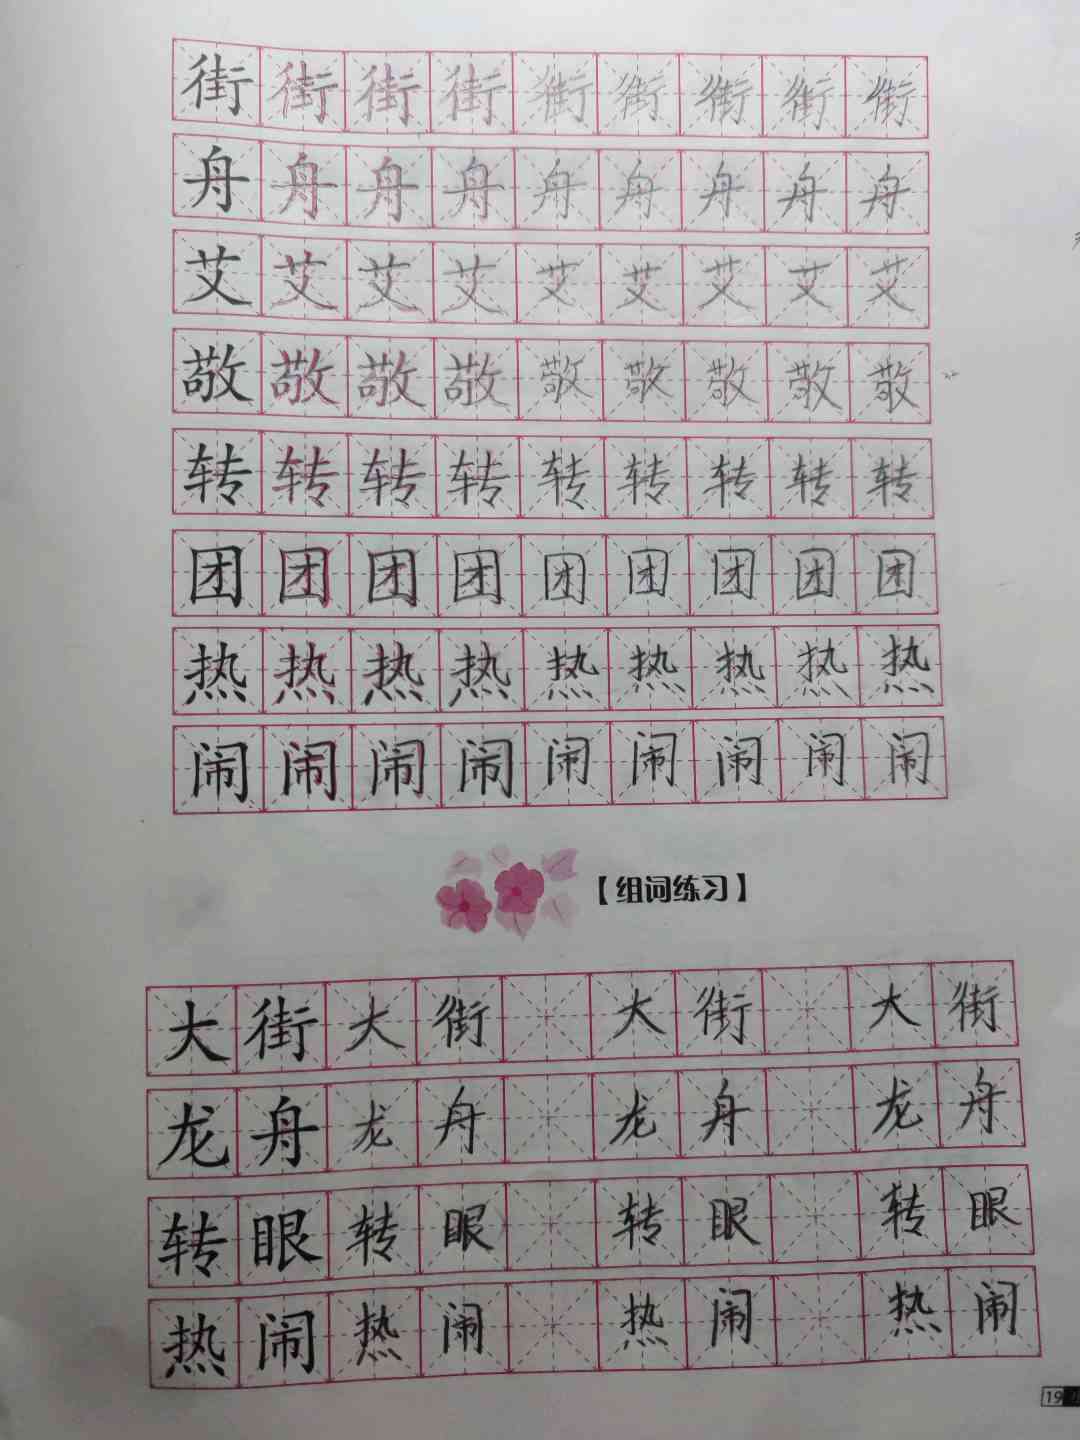 街街街街街街街街街
舟舟舟舟舟舟舟舟舟
艾艾艾艾艾艾艾艾艾
敬敬敬敬敬敬敬敬敬
转转转转转转转转转
团团团团团团团团团
热热热热热热热热热
闹闹闹闹闹闹闹闹闹
【组词练习】
大街大街 大街 大街
龙舟龙舟 龙舟 龙舟
转眼转眼 转眼 转眼
热闹热闹 热闹 热闹
19